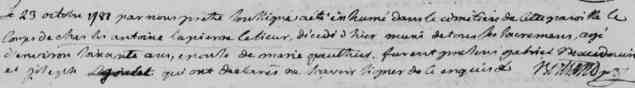 Le 23 octobre 1781 par nous prêtre soussigné a été inhumé dans le cimetière de cette paroisse le
Corps de charles antoine lapierre lesieur, décédé d'hier muni de tous les sacremens, agé
d'environ soixante ans, epoux de marie gauthier, furent présens gabriel
et joseph qui ont déclarés ne savoir signer de ce enquis